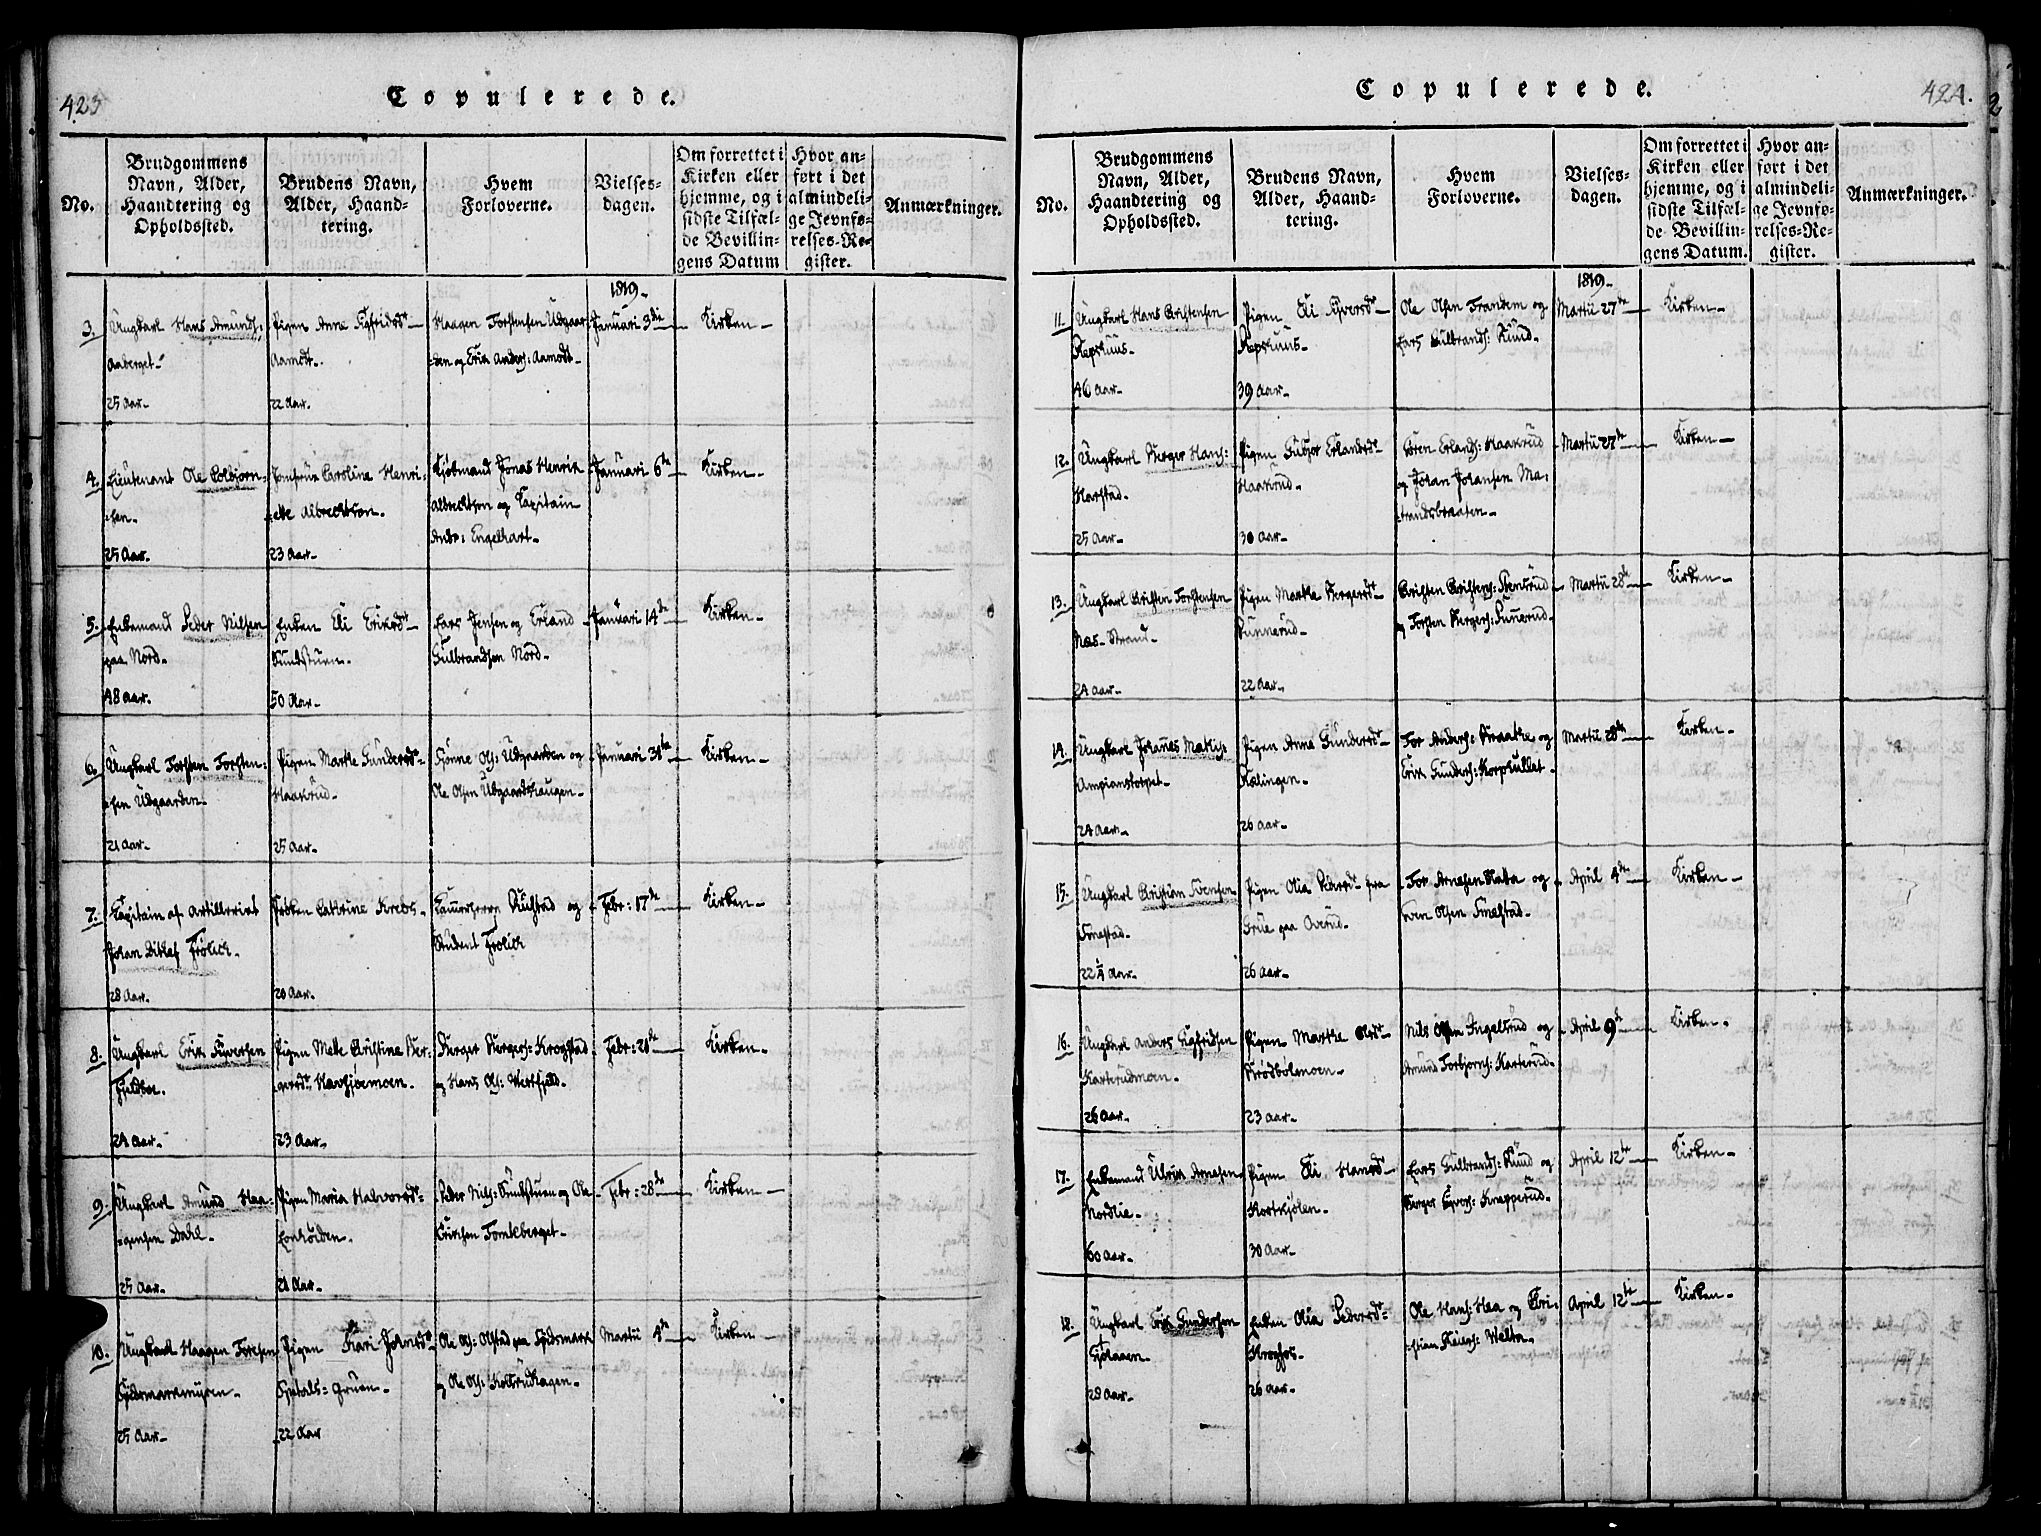 423
Copulerede.
No.
Brudgommens
Navn, Alder,
Haandtering og
Opholdssted.
Brudens Navn,
Alder, Haand-
tering.
Hvem
Forloverne.
Vielses-
dagen.
Om forrettet i
Kirken eller
hjemme, og i
sidste Tilfæl-
de Bevillin-
gens Datum
Hvor an-
ført i det
almindeli-
ge Jevnfø-
relses-Re-
gister.
Anmærkninger.
1819.
3.
Ungkarl Hans Amunds:
Aaberget
25 Aar.
Pigen Anne Sigfridsdt
Aamodt.
22 Aar.
Haagen Torstensen Udgaar
den og Erik Anders: Aamodt
Januari 3die
Kirken
4.
Lieutenant Ole Colbjørn-
sen.
25 Aar.
Jomfrue Caroline Henri-
ette Albrechtson.
23 Aar
Kjøbmand Jonas Henrik
Albrechtson og Capitain
Andr: Engelhart
Januari 6te
Kirken
5.
Enkemand Peder Nilsen
paa Nord.
48 Aar.
Enken Eli Eriksdt
Sundstuen.
50 Aar
Lars Jensen og Erland
Gulbrandsen Nord
Januari 14de
Kirken
6.
Ungkarl Torsten Torsten-
sen Udgaarden
21 Aar.
Pigen Marthe Gundersdt
Haakrud
25 Aar.
Tjønne Ols: Udgaarden og
Ole Olsen Udgaardshaugen
Januari 31te
Kirken
7.
Capitain af Artilleriet
Johan Ditlef Frølich.
28 Aar.
Frøken Cathrine Krebs
20 Aar.
Kammerherre Rustad og
Student Frolich
Febr: 17de
Kirken
8.
Ungkarl Erik Syversen
Fjeldboe.
24 Aar.
Pigen Mette Christine Ber-
gersdt Havsjøemoen.
23 Aar
Berger Bergers: Krogstad
og Hans Ols: Westfjeld
Febr: 21de
Kirken
9.
Ungkarl Amund Haa-
gensen Dahl
25 Aar.
Pigen Maria Halvorsdt
21 Aar
Peder Nils: Sundstuen og Ole
Erichsen Tomteberget
Febr: 28de
Kirken
10.
Ungkarl Haagen Toresen
25 Aar
Pigen Kari Johnsdt
Spetals-gruen
22 Aar
Ole Ols: Olstad paa Eidsmark
og Ole Ols: Kolterudhagen
Martii 4de
Kirken
Copulerede.
424.
No.
Brudgommens
Navn, Alder,
Haandtering og
Opholdssted.
Brudens Navn,
Alder, Haand-
tering.
Hvem
Forloverne.
Vielses-
dagen.
Om forrettet i
Kirken eller
hjemme, og i
sidste Tilfæl-
de Bevillin-
gens Datum.
Hvor an-
ført i det
almindeli-
ge Jevnfø-
relses-Re-
gister.
Anmærkninger.
1819.
11.
Ungkarl Hans Christensen
Repshuus
46 Aar
Pigen Eli Syversdt
Repshuus
39 Aar
Ole Olsen Frandem og
Lars Gulbrands: Ruud
Martii 27de
Kirken
12.
Ungkarl Berger Hans:
Harstad.
25 Aar
Pigen Gubjør Erlandsdt
Haakrud.
30 Aar
Soren Erlands: Haakrud
og Johan Johansen Ma-
strandsbraaten
Martii 27de
Kirken
13.
Ungkarl Christen Torstensen
Næs-Strand
24 Aar
Pigen Marthe Bergersdt
Runnerud.
22 Aar
og Torsten Bergers: Runnerud
Martii 28de
Kirken
14.
Ungkarl Johannes Mathis:
24 Aar
Pigen Anne Gundersdt
Kælingen.
26 Aar
Tor Anders: Braathe og
Erik Gunders: Korphullet
Martii 28de
Kirken
15.
Ungkarl Christian Svensen
Smestad.
22½ Aar
Pigen Olia Pedersdt fra
Grue paa Overud.
26 Aar
Tor Arnesen Nabe og
Sven Olsen Smestad
April 4de
Kirken
16.
Ungkarl Anders Sigfridsen
Karterudmoen.
26 Aar
Pigen Marthe Olsdt
Brødbølmoen
23 Aar
Nils Olsen Ingelsrud og
Amund Torbjorns: Karterud
April 9de
Kirken
17.
Enkemand Ulrik Arnesen
Nordlie
60 Aar
Pigen Eli Hansdt
Kortkjølen.
30 Aar
Lars Gulbrands: Ruud og
Berger Syvers: Knapperud
April 12te
Kirken
18.
Ungkarl Erik Gundersen
Sjølaaen
28 Aar
Enken Olia Pedersdt
Krogfos
26 Aar
Ole Hans: Haa og Chri-
stian Weltn
April 12te
Kirken